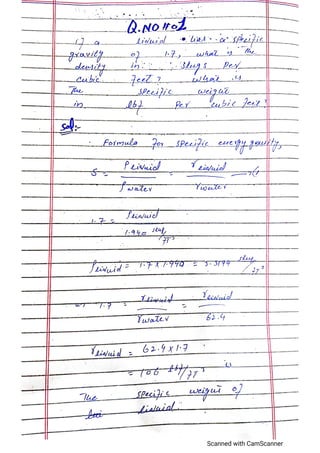 Q.NO # 01
If a liquid has a specific
gravity of 1.7, what is the
density in slugs per
cubic feet? what is
The specific weight
in lbf per cubic feet?
Sol:-
Formula for specific gravity,
S = ρ liquid / ρ water = γ liquid / γ water
1.7 = ρ liquid / 1.940 slug/ft³
ρ liquid = 1.7 x 1.940 = 3.3 slug/ft³
=> 1.7 = γ liquid / γ water = γ liquid / 62.4
γ liquid = 62.4 x 1.7
= 106 lbf/ft³ is
The specific weight of
liquid.
Scanned with CamScanner